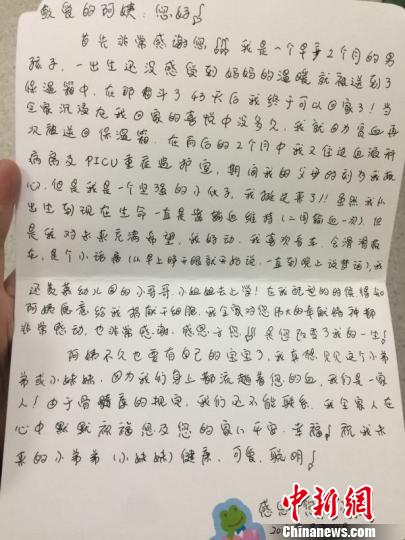 敬爱的阿姨：您好！
首先非常感谢您！！！我是一个早产2个月的男
孩子，一出生还没感受到妈妈的温暖就被送到了
保温箱中，在那奋斗了43天后我终于可以回家了！当
全家沉浸在我回家的喜悦中没多久，我就因为贫血再
次被送回保温箱。在前后的2个月中我又住过血液科
病房及PICU重症监护室，期间我的父母的
心，但是我是一个坚强的小伙子，我挺过来了！！虽然我从
出生到现在生命一直是靠输血维持（二周输血一次）但
是我对未来充满希望，我好动，我喜欢音乐，会滑滑板
车，是个小话痨（从早上睁开眼就开始说，一直到晚上说梦话），我
还羡慕幼儿园的小哥哥小姐姐去上学！在我配型的时候得知
阿姨愿意给我捐献干细胞，我全家对您伟大的奉献精神都
非常感动，也非常感谢，感恩于您！！！是您改变了我的一生！
阿姨不久也要有自己的宝宝了，我在想见见这个小弟
弟或小妹妹，因为我们身上都流趟着您的血，我们是一家
人！由于骨髓库的规定，我们还不能联系，我全家人在
心中默默祝福您及您的家人平安，幸福！祝我未
来的小弟弟（小妹妹）健康，可爱，聪明！
感恩您
中新网
Chinanews.com